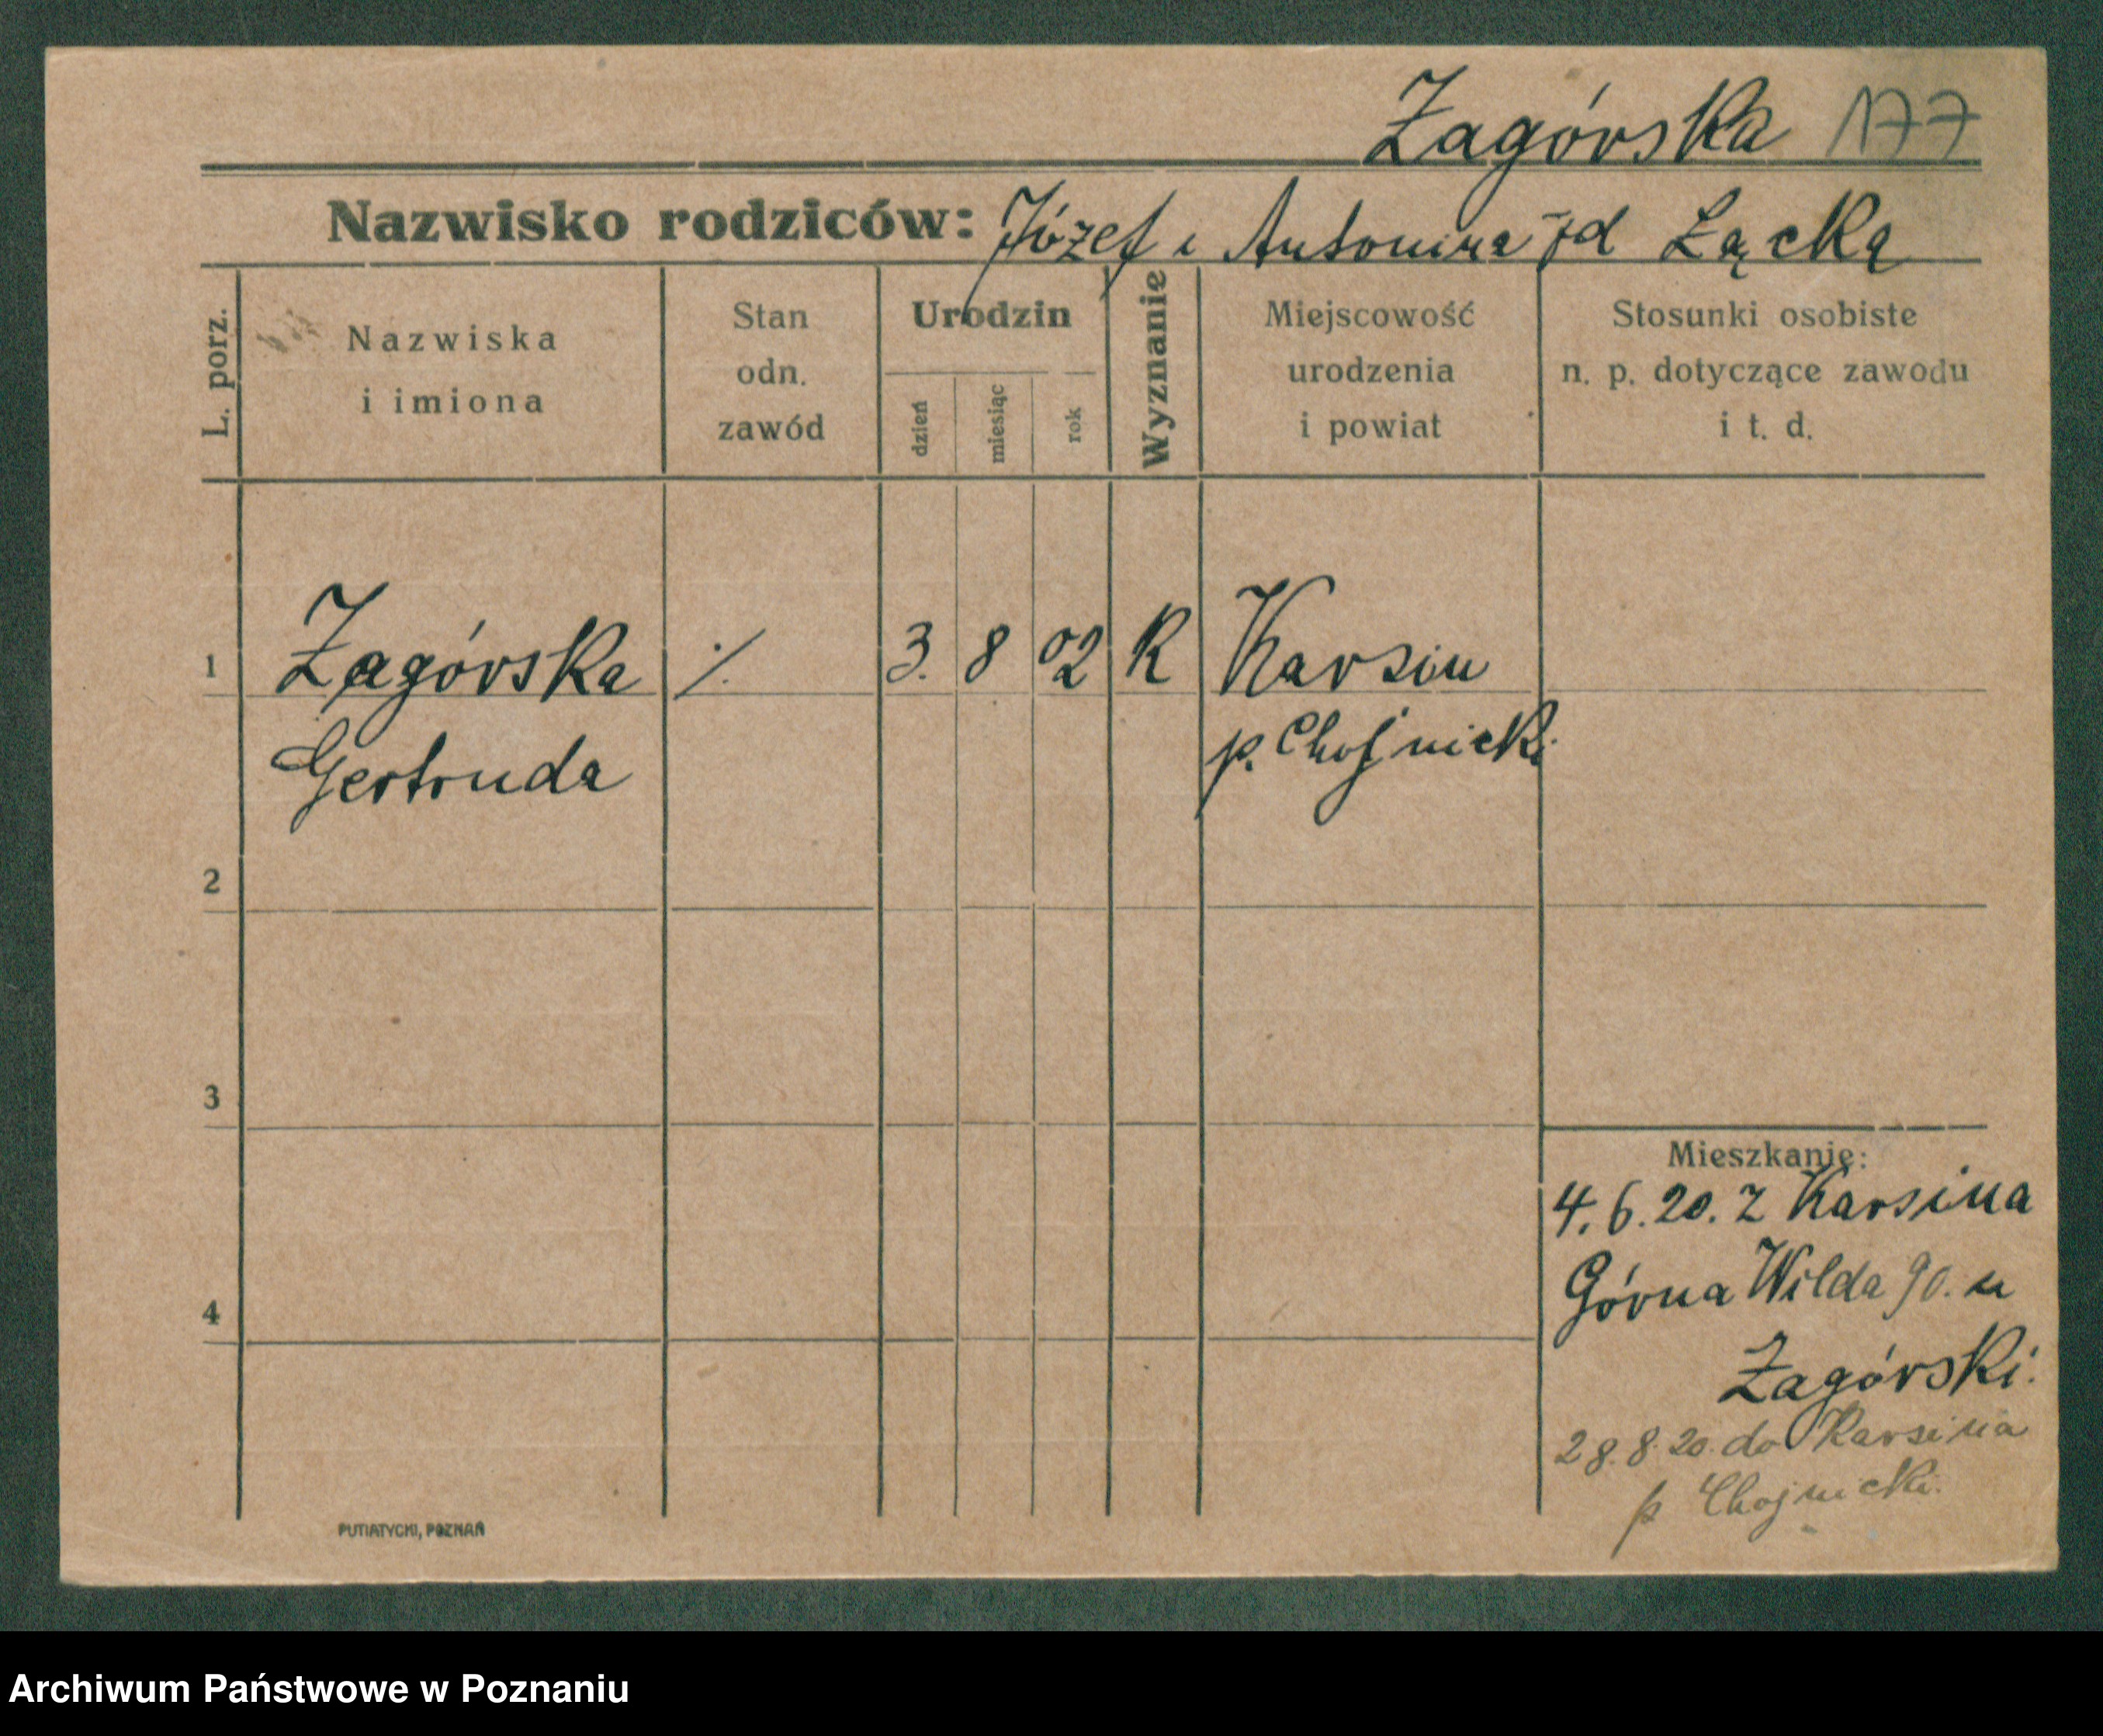 Zagórska 177
Nazwisko rodziców: Józef i Antonina zd Łącką
L. porz.
Nazwiska
i imiona
Stan
odn.
zawód
Urodzin
dzień
miesiąc
rok
Wyznanie
Miejscowość
urodzenia
i powiat
Stosunki osobiste
n. p. dotyczące zawodu
i t. d.
1 Zagórska ./. 3. 8 02 R Karsin
Gertruda p. Chojnicki
2
3
Mieszkanie:
4. 6. 20. z Karsina
Górna Wilda 90. u
4
Zagórski.
28. 8. 20. do Karsina
p Chojnicki.
PUTIATYCKI, POZNAŃ
Archiwum Państwowe w Poznaniu